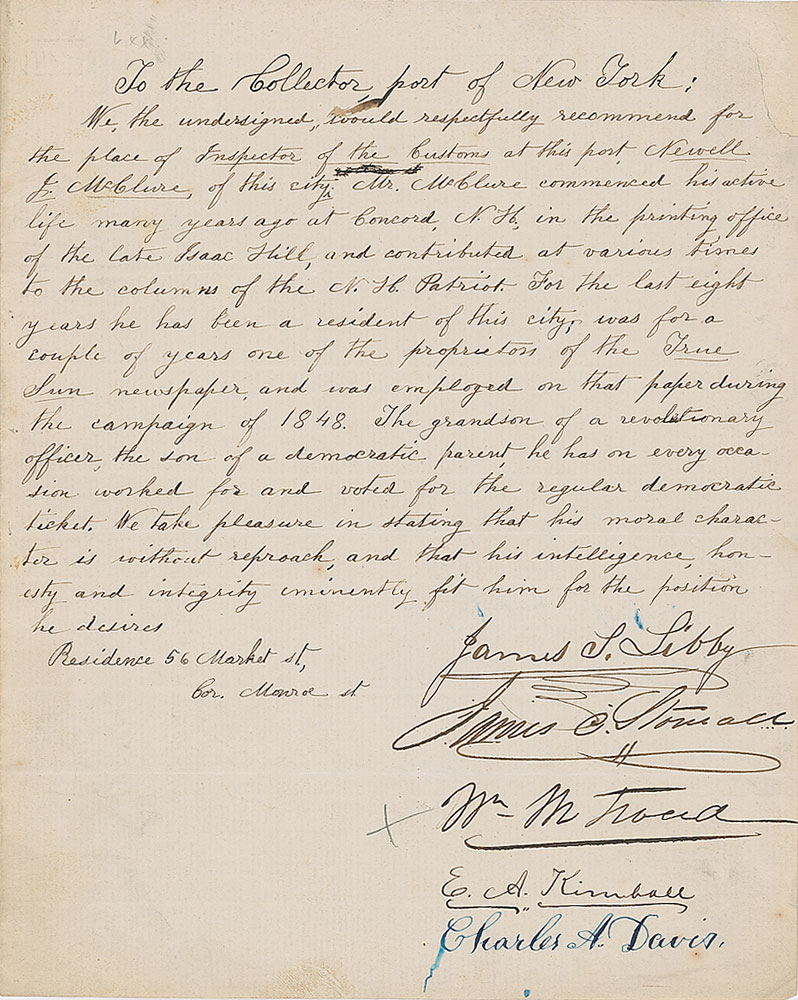 To the Collector, port of New York:
We, the undersigned, would respectfully recommend for
the place of Inspector of the Customs at this port, Newell
J. McClure, of this city. Mr. McClure commenced his active
life many years ago at Concord, N. H., in the printing office
of the late Isaac Hill, and contributed at various times
to the columns of the N. H. Patriot. For the last eight
years he has been a resident of this city, was for a
couple of years one of the proprietors of the True
Sun newspaper, and was employed on that paper during
the campaign of 1848. The grandson of a revolutionary
officer, the son of a democratic parent, he has on every occa-
sion worked for and voted for the regular democratic
ticket. We take pleasure in stating that his moral charac-
ter is without reproach, and that his intelligence, hon-
esty and integrity eminently fit him for the position
he desires
Residence 56 Market st,
Cor. Monroe st
James S. Libby
James
Wm M
E. A. Kimball
Charles A. Davis.